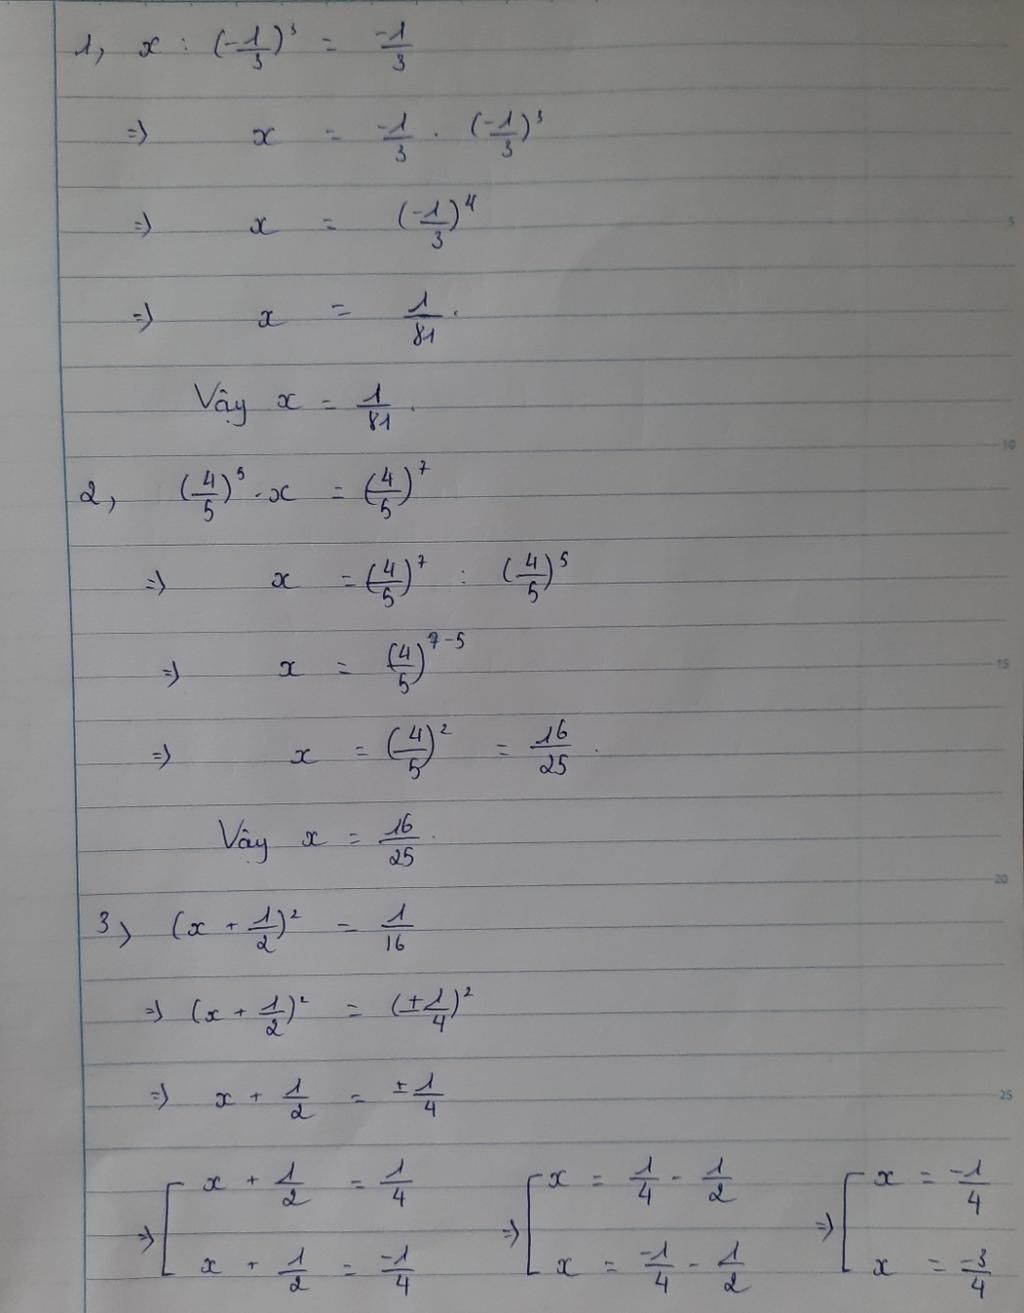 1, x : (-1/3)³ = -1/3
=> x = -1/3 . (-1/3)³
=> x = (-1/3)⁴
=> x = 1/81.
Vậy x = 1/81.
2, (4/5)⁵ . x = (4/5)⁷
=> x = (4/5)⁷ : (4/5)⁵
=> x = (4/5)⁷⁻⁵
=> x = (4/5)² = 16/25.
Vậy x = 16/25.
3, (x + 1/2)² = 1/16
=> (x + 1/2)² = (±1/4)²
=> x + 1/2 = ±1/4
=> [ x + 1/2 = 1/4 => [ x = 1/4 - 1/2 => [ x = -1/4
x + 1/2 = -1/4 x = -1/4 - 1/2 x = -3/4
5
10
15
20
25